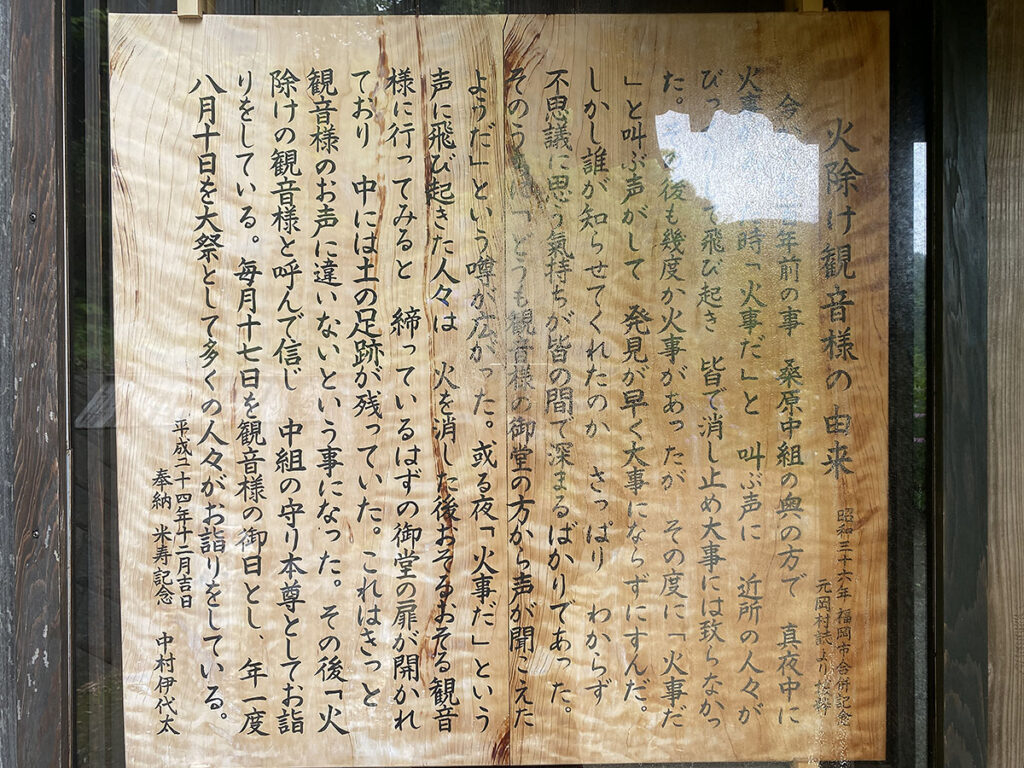 火除け観音様の由来
昭和三十六年 福岡市合併記念
元岡村誌より抜粋
今 年前の事 桑原中組の奥の方で 真夜中に
火事 時「火事だ」と 叫ぶ声に 近所の人々が
びっ て飛び起き 皆で消し止め大事には致らなかっ
た。 の後も幾度か火事があったが その度に「火事だ
」と叫ぶ声がして 発見が早く大事にならずにすんだ。
しかし誰が知らせてくれたのか さっぱり わからず
不思議に思う氣持ちが皆の間で深まるばかりであった。
そのうち 「どうも観音様の御堂の方から声が聞こえた
ようだ」という噂が広がった。或る夜「火事だ」という
声に飛び起きた人々は 火を消した後おそるおそる観音
様に行ってみると 締っているはずの御堂の扉が開かれ
ており 中には土の足跡が残っていた。これはきっと
観音様のお声に違いないという事になった。その後「火
除けの観音様と呼んで信じ 中組の守り本尊としてお詣
りをしている。毎月十七日を観音様の御日とし、年一度
八月十日を大祭として多くの人々がお詣りをしている。
平成二十四年十二月吉日
奉納 米寿記念 中村伊代太